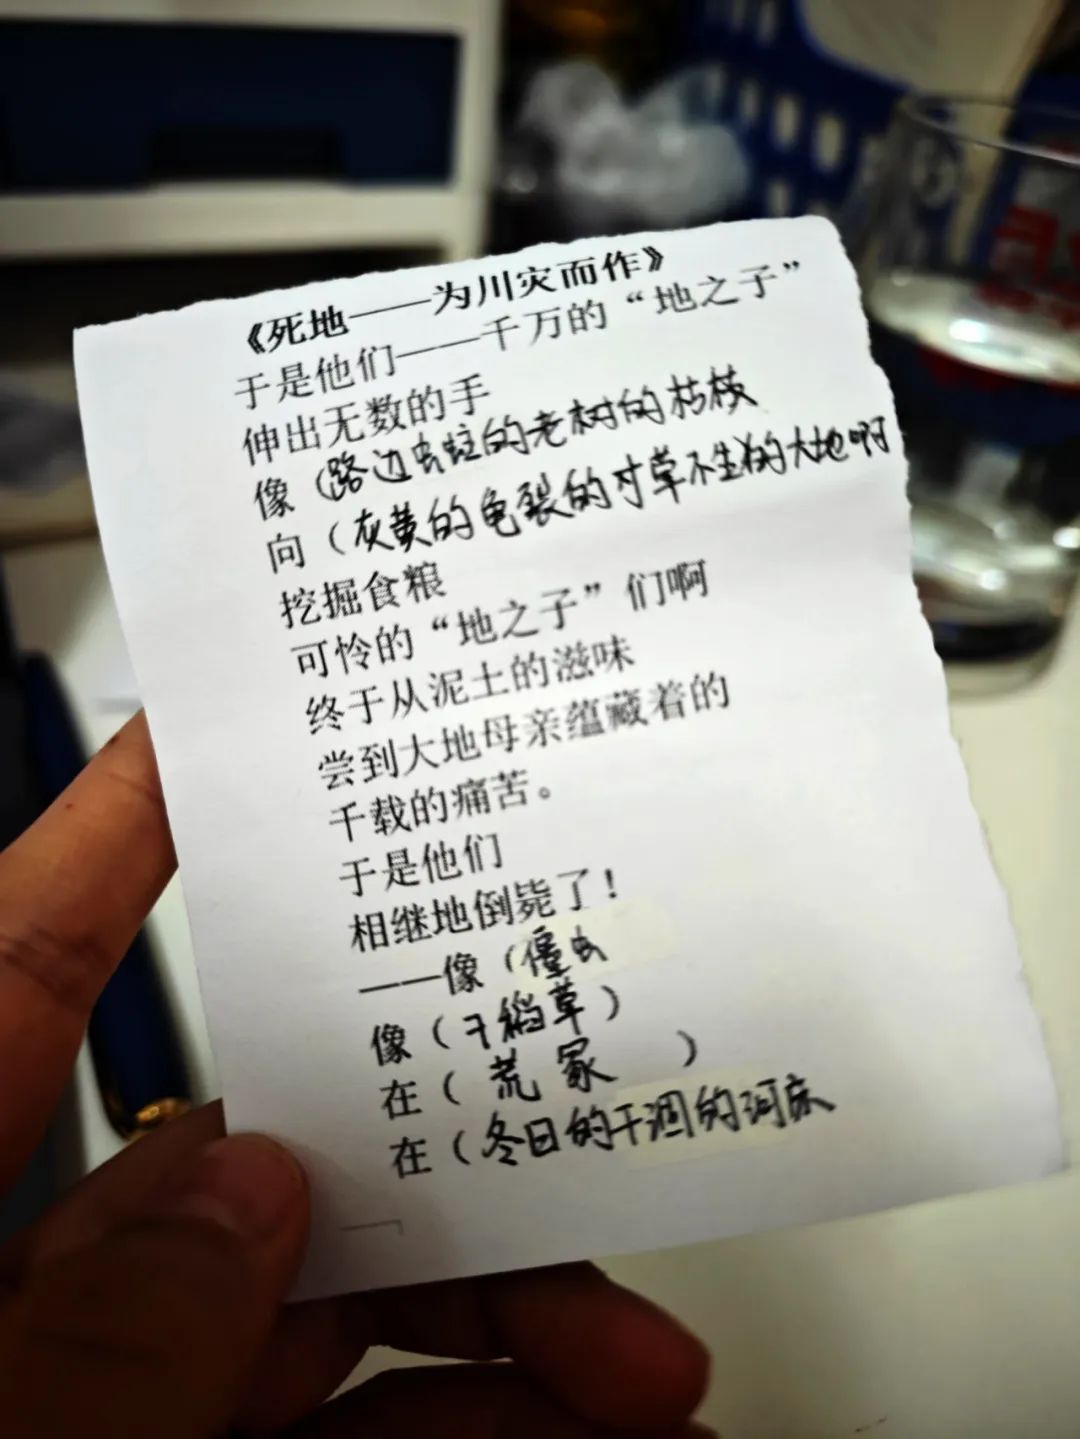 《死地——为川灾而作》
于是他们——千万的“地之子”
伸出无数的手
像（路边虫蛀的老树的枯枝
向（灰黄的龟裂的寸草不生的大地啊
挖掘食粮
可怜的“地之子”们啊
终于从泥土的滋味
尝到大地母亲蕴藏着的
千载的痛苦。
于是他们
相继地倒毙了！
——像（僵虫
像（干稻草）
在（荒冢）
在（冬日的干涸的河床